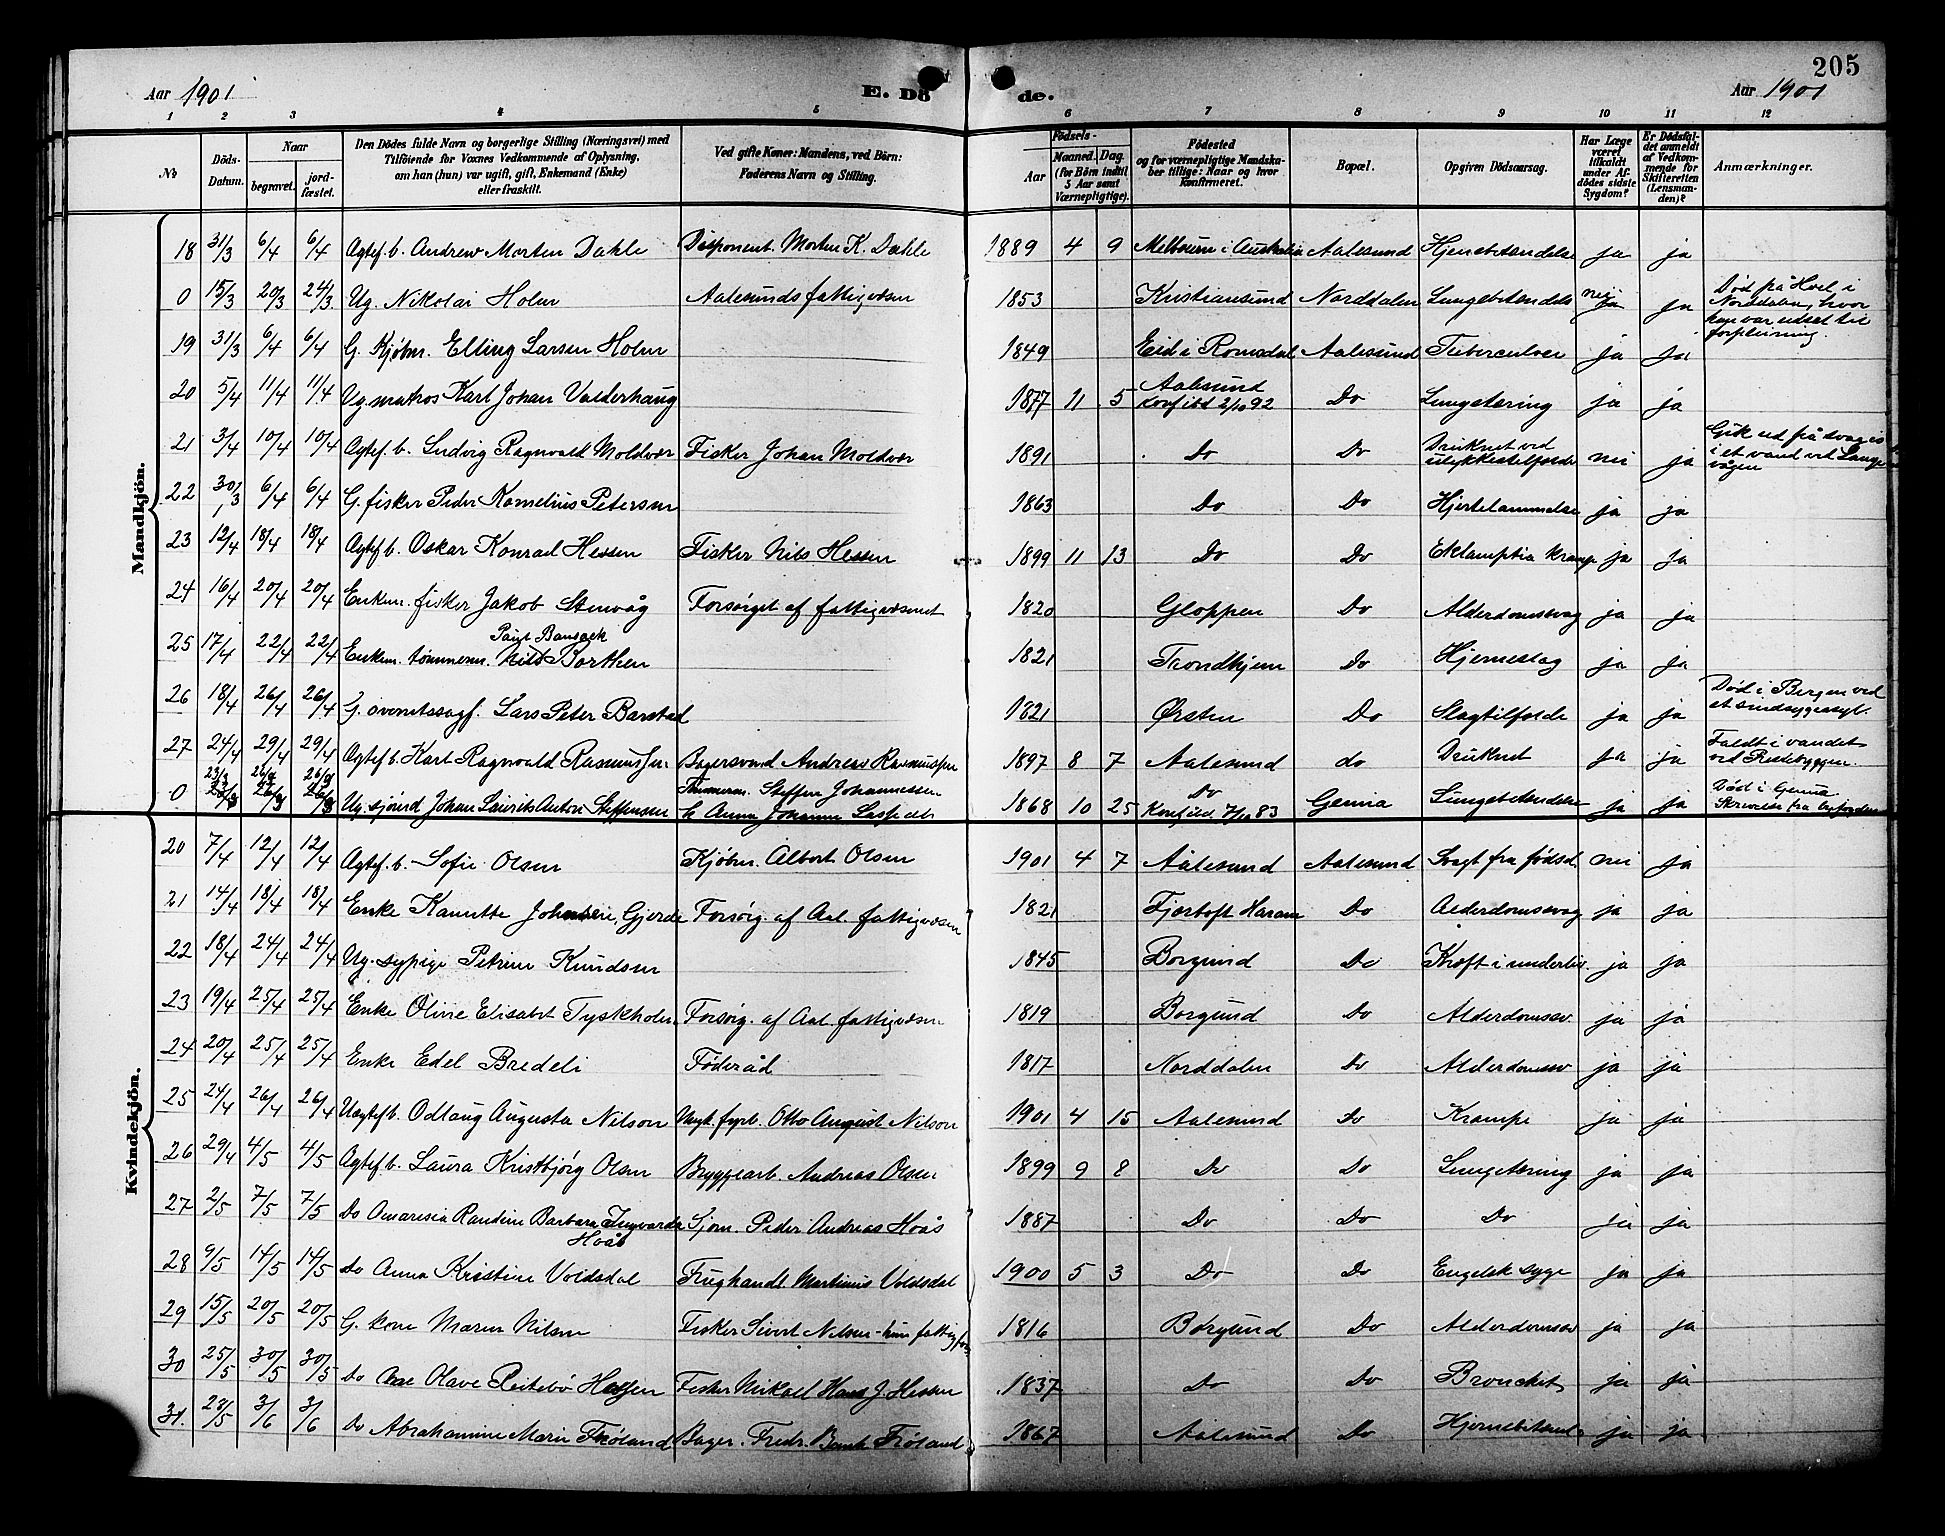 205
Aar 1901 E. Dö de. Aar 1901
1 2 3 4 5 6 7 8 9 10 11 12
No Döds-Datum. Naar begravet. jordfæstet. Den Dödes fulde Navn og borgerlige Stilling (Næringsvei) med Tilföiende for Voxnes Vedkommende af Oplysning, om han (hun) var ugift, gift, Enkemand (Enke) eller fraskilt. Ved gifte Koner: Mandens, ved Börn: Faderens Navn og Stilling. Födsels- Aar Maaned. Dag (for Börn indtil 5 Aar samt Værnepligtige). Födested og for værnepligtige Mandskaber tillige: Naar og hvor konfirmeret. Bopæl. Opgiven Dödsaarsag. Har Læge været tilkaldt under Afdödes sidste Sygdom? Er Dödsfaldet anmeldt af Vedkommende for Skifteretten (Lensmanden)? Anmærkninger.
Mandkjön.
18 31/3 6/4 6/4 Agtef. b. Andrew Morten Dahle Disponent. Morten K. Dahle 1889 4 9 Melbourn i Australia Aalesund Hjernebetændelse ja ja
0 15/3 20/3 24/3 Ug. Nikolai Holm Aalesunds fattigvæsen 1853 Kristiansund Norddalen Lungebetændels nei ja ja Död på Hoel i Norddalen, hvor han var udsat til forpleining.
19 31/3 6/4 6/4 G. Kjøbm. Elling Larsen Holm 1849 Eid i Romsdal Aalesund Tuberculose ja ja
20 5/4 11/4 11/4 Ug. matros Karl Johan Valderhaug 1877 11 5 Aalesund konf ibd 2/10 92 Do Lungetæring ja ja
21 3/4 10/4 10/4 Agtef. b. Ludvig Ragnvald Moldvær Fisker Johan Moldvær 1891 Do Do Druknet ved ulykkestilfælde nei ja Gik ud på svag is i et vand ved Langevågen
22 30/3 6/4 6/4 G. fisker Peder Kornelius Petersen 1863 Do Do Hjertelammelse ja ja
23 12/4 18/4 18/4 Agtef b. Oskar Konrad Hessen Fisker Nils Hessen 1899 11 13 Do Do Eklamptia Krampe ja ja
24 16/4 20/4 20/4 Enkem. fisker Jakob Stenvåg Forsørget af fattigvæsenet 1820 Gloppen Do Alderdomssvag ja ja
25 17/4 22/4 22/4 Enkem. tømmerm. Nils Borthen 1821 Trondhjem Do Hjerneslag ja ja
26 18/4 26/4 26/4 G. overretssagf. Lars Peter Barstad 1821 Ørsten Do Slagtilfælde ja ja Död i Bergen ved et sindsygeasyl.
27 24/4 29/4 29/4 Agtef b. Karl Ragnvald Rasmussen Bagersvend Andreas Rasmussen 1897 8 7 Aalesund do Druknet ja ja Faldt i vandet ved
0 23/3 26/3 26/3 Ug. sjømd Johan Lauritz Anton Steffensen Tømmerm. Steffen Johannessen & Anna Johanna 1868 10 25 Do Konf ibd. 7/10 83 Genua Lungebetændelse ja ja Död i Genua Skrivelse fra
Kvindekjön.
20 7/4 12/4 12/4 Agtef. b. Sofie Olsen Kjøbm. Albert Olsen 1901 4 7 Aalesund Aalesund Svagt fra fødsel nei ja
21 14/4 18/4 18/4 Enke Kanutte Johnsen, Gjerde Forsørg. af Aal. fattigvæsen 1821 Fjørtoft Haram Do Alderdomssvag ja ja
22 18/4 24/4 24/4 Ug. sypige Petrine Knudsen 1845 Borgund Do Kræft i underliv. ja ja
23 19/4 25/4 25/4 Enke Oline Elisabet Tyskholm Forsørg. af Aal. fattigvæsen 1819 Borgund Do Alderdomssv. ja ja
24 20/4 25/4 25/4 Enke Edel Bredeli Føderåd 1817 Norddalen Do Alderdomssv ja ja
25 24/4 26/4 26/4 Uægtef b. Odlaug Augusta Nilson Otto August Nilson 1901 4 15 Aalesund Do Krampe ja ja
26 29/4 4/5 4/5 Agtef b. Laura Kristbjørg Olsen Bryggearb. Andreas Olsen 1899 9 8 Do Do Lungetæring ja ja
27 2/5 7/5 7/5 Do Randine Barbara Ingvarda Hoås Sjøm. Peder Andreas Hoås 1887 Do Do Do ja ja
28 9/5 14/5 14/5 Do Anna Kristine Voldsdal Frugthandl. Martinus Voldsdal 1900 5 3 Do Do Engelsk syge ja ja
29 15/5 20/5 20/5 G. kone Maren Nilsen Fisker Sivert Nilsen - hun fattig 1816 Borgund Do Alderdomssv ja ja
30 25/5 30/5 30/5 Do Ane Olave Reitebø Hessen Fisker Mikael Hans J. Hessen 1837 Do Do Bronchet ja ja
31. 23/5 3/6 3/6 Do Abrahamine Marie Frøland Bager. Fredr. Frøland 1867 Aalesund Do Hjernebetænd. ja ja